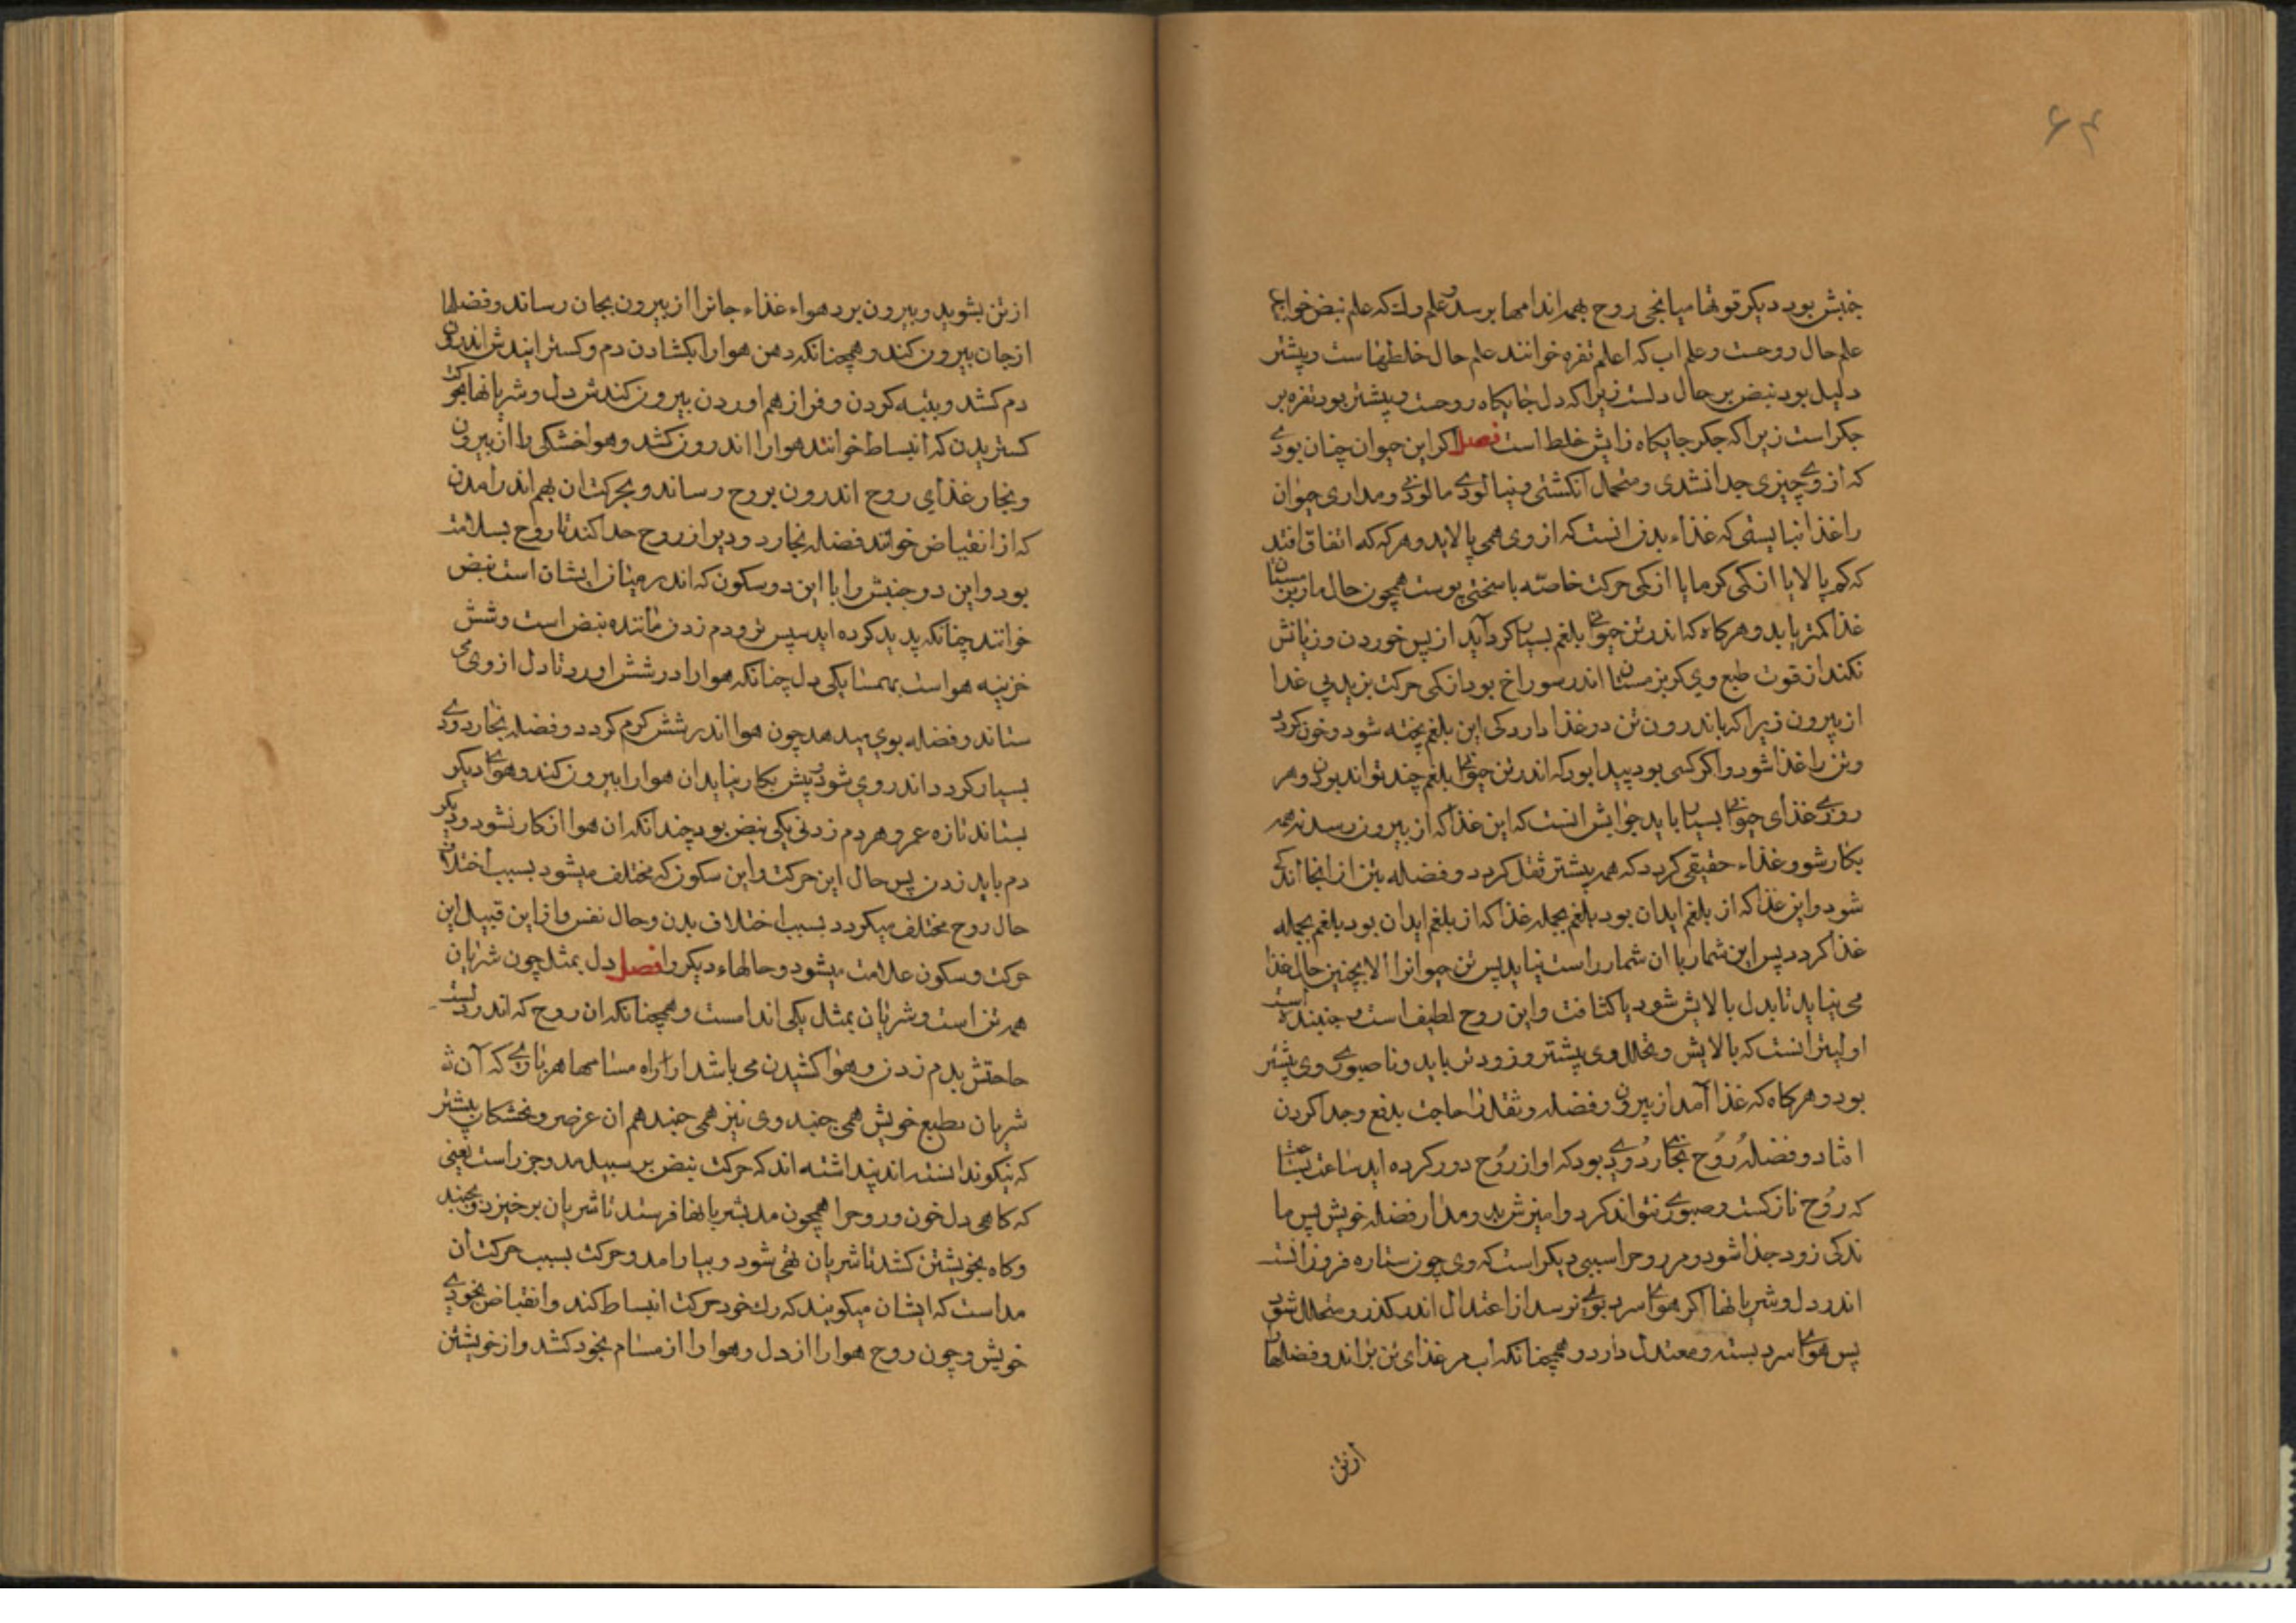 ۶۴
جنبش بود دیکر قوتها میانجی روح بهمه اندامها برسد و علم رک که علم نبض خوانند
علم حال روحست و علم اب که اعلم تفره خوانند علم حال خلطهاست و بیشتر
دلیل بود نبض بر حال دلست زیرا که دل جایکاه روحست و بیشتر بود تفره بر
جکر است زیرا که جکر جایکاه زایش خلط است فصل اکر این حیوان چنان بودی
که از وی چیزی جدا نشدی و متحلل نکشتی و نپالودی مالودی و مداری حیوان
را غذا نبایستی که غذاء بدل انست که از وی همی پالاید و هرکه که اتفاق افتد
که کم پالاید یا از کمی کرما یا از کمی حرکت خاصّه با سختی پوست همچون حال مار بزمستان
غذا کمتر باید و هرکاه که اندر تن حیوان بلغم بسیار کرد آید از پس خوردن و زیانش
نکند از قوت طبع وی کر بزمستان اندر سوراخ بود از کمی حرکت بزید بی غذا
از بیرون زیرا که باندرون تن در غذا دارد کی این بلغم پخته شود و خون کردد
و تن را غذا شود و اکر کسی بود پیدا بود که اندر تن حیوان بلغم چند تواند بودن و هر
روزی غذای حیوان بسیار باید جوابش انست که این غذا که از بیرون رسد نه همه
بکار شود و غذاء حقیقی کردد که همه بیشتر ثفل کردد و فضله بتن از انجا اندکی
شود و این غذا که از بلغم ایدان بود بلغم بجمله غذا که از بلغم ایدان بود بلغم بجمله
غذا کردد پس این شمار با ان شمار راست نیاید پس تن حیوانرا الا بچنین حال غذا
می نیاید تا بدل بالایش شود با کثافت و این روح لطیف است و جنبنده است
اولیتر انست که بالایش و تحلل وی بیشتر و زودتر باید و ناصبوری وی بیشتر
بود و هرکاه که غذا آمد از بیرون و فضله و ثقل را حاجت بدفع و جدا کردن
افتاد و فضله رُوح بخار دُودی بود که او از رُوح دور کرده اید ساعت بساعت
که رُوح نازکست و صبوری نتواند کرد و امیزش بد و مدار فضله خویش پس ما
ندکی زود جدا شود و مر روحرا سببی دیکر است که وی چون ستاره فروزانست
اندر دل و شریانها اکر هوای سرد بوی نرسد از اعتدال اندر کذرد و متحلل شود
پس هوای سرد بسته و معتدل دارد و همچنانکه اب مر غذای تن براند و فضلها
از تن
از تن بشوید و بیرون برد هواء غذاء جانرا از بیرون بجان رساند و فضلها
از جان بیرون کند و همچنانکه دهن هوا را بکشادن دم و کسترانیدنش اندرون
دم کشد و بپنبه کردن و فراز هم اوردن بیرون کندش دل و شریانها بحرکت
کستریدن که انبساط خوانند هوا را اندرون کشد و هوا خشکی را از بیرون
و بخار غذای روح اندرون بروح رساند و بحرکت ان بهم اندر امدن
که از انقباض خوانند فضله بخار دودیرا از روح جدا کند تا روح بسلامت
بود و این دو جنبش را با این دو سکون که اندر میان ایشان است نبض
خوانند چنانکه پدید کرده اید سپس تر و دم زدن مانندهٔ نبض است و شش
خزینه هواست بهمسایکی دل چنانکه هوا را در شش اورد تا دل از وی می
ستاند و فضله بوی میدهد چون هوا اندر شش کرم کردد و فضله بخار دودی
بسیار کردد اندر وی شود و بیش بکار نیاید ان هوا را بیرون کند و هوای دیکر
بستاند تازه عمر و هر دم زدنی یکی نبض بود چندانکه ان هوا از کار نشود و دیکر
دم باید زدن پس حال این حرکت و این سکون که مختلف میشود بسبب اختلاف
حال روح مختلف میکردد بسبب اختلاف بدن و حال نفس و از این قبیل این
حرکت و سکون علامت میشود و حالهاء دیکر را فصل دل بمثل چون شریان
همه تن است و شریان بمثل یکی اندامست و همچنانکه ان روح که اندر دلست
حاجتش بدم زدن و هوا کشیدن می باشد از راه مسامها هر باری که آن
شریان بطبع خویش همی جنبد وی نیز همی جنبد هم ان عرض و پخشکان بیشتر
که نیکو ندانسته اند پنداشته اند که حرکت نبض بر سبیل مد و جزر است یعنی
که کاهی دل خون و روحرا همچون مد بشریانها فرستد تا شریان برخیزد و بجنبد
و کاه بخویشتن کشد تا شریان تهی شود و بیارامد و حرکت بسبب حرکت ان
مد است که ایشان میکویند که رک خود حرکت انبساط کند و انقباض بخودی
خویش و چون روح هوا را از دل و هوا را از مسام بخود کشد و از خویشتن